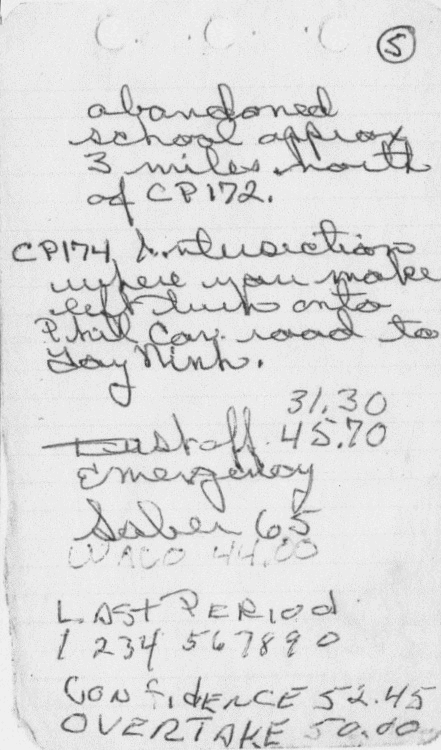 5
abandoned
school approx
3 miles north
of CP172.
CP174, intersection
where you make
left turn onto
Phil Cav. road to
Tay Ninh.
31.30
45.70
Emergency
Saber 65
WACO 44.00
LAST PERIOd
1 234 567890
CONfidENCE 52.45
OVERTAKE 50.00